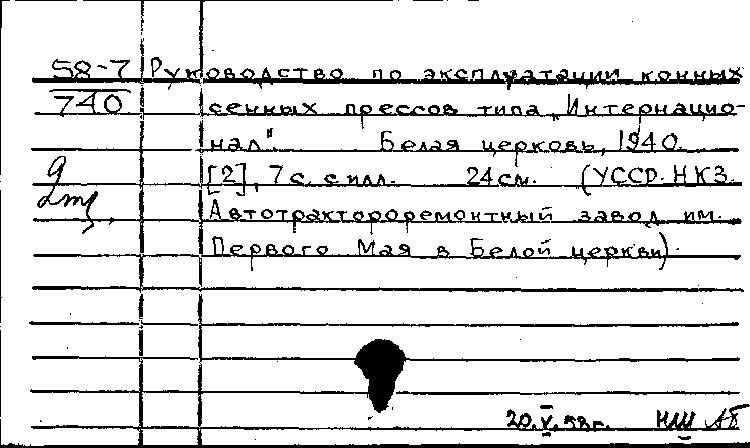 58-7 Руководство по эксплуатации конных
740 сенных прессов типа „Интернацио-
нал". Белая церковь, 1940.
[2], 7 с. с илл. 24 см. (УССР. НКЗ.
Автотрактороремонтный завод им.
Первого Мая в Белой церкви).
20.V.58г.